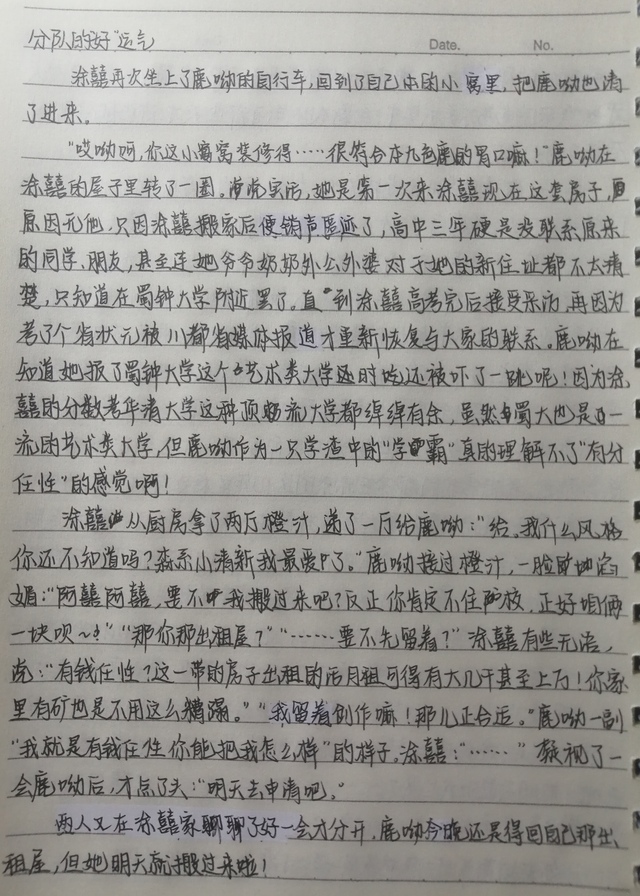 分队的好“运气
Date. No.
涂囍再次坐上了鹿呦的自行车,回到了自己的小窝里,把鹿呦也请
了进来。
“哎呦呵,你这小窝窝装修得……很符合本九色鹿的胃口嘛!”鹿呦在
涂囍的屋子里转了一圈。说实话,她是第一次来涂囍现在这套房子,
原因无他,只因涂囍搬家后便销声匿迹了,高中三年硬是没联系原来
的同学、朋友,甚至连她爷爷奶奶外公外婆对于她的新住址都不太清
楚,只知道在蜀钟大学附近罢了。直到涂囍高考完后接受采访,再因为
考了个省状元被川都省媒体报道才重新恢复与大家的联系。鹿呦在
知道她报了蜀钟大学这个艺术类大学时还被吓了一跳呢!因为涂
囍的分数考华清大学这种顶流大学都绰绰有余,虽然蜀大也是一
流的艺术类大学,但鹿呦作为一只学渣中的“学霸”真的理解不了“有分
任性”的感觉啊!
涂囍从厨房拿了两厅橙汁,递了一厅给鹿呦:“给。我什么风格
你还不知道吗?森系小清新我最爱了。”鹿呦接过橙汁,一脸谄
媚:“阿囍阿囍,要不我搬过来吧?反正你肯定不住校,正好咱俩
一块呗~!”“那你那出租屋?”“……要不先留着?”涂囍有些无语,
说:“有钱任性?这一带的房子出租的话月租可得有大几千甚至上万!你家
里有矿也是不用这么糟蹋。”“我留着创作嘛!那儿正合适。”鹿呦一副
“我就是有钱任性你能把我怎么样”的样子。涂囍:“……”凝视了一
会鹿呦后,才点了头:“明天去申请吧。”
两人又在涂囍家聊聊了好一会才分开,鹿呦今晚还是得回自己那出
租屋,但她明天就搬过来啦!